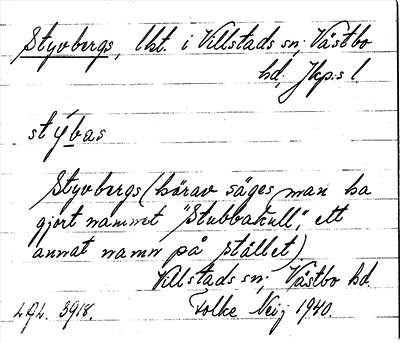 Styvbergs, lht. i Villstads sn; Västbo
hd, Jkp:s l.
stýbas
Styvbergs (härav säges man ha
gjort namnet "Stubbakull", ett
annat namn på stället).
Villstads sn; Västbo hd.
LAL. 3918. Folke Neij 1940.